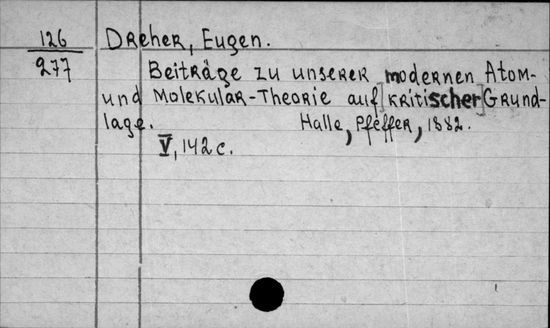 126 Dreher, Eugen.
277 Beiträge zu unserer modernen Atom-
und Molekular-Theorie auf kritischer Grund-
lage. Halle, Pfeffer, 1882.
V, 142 c.